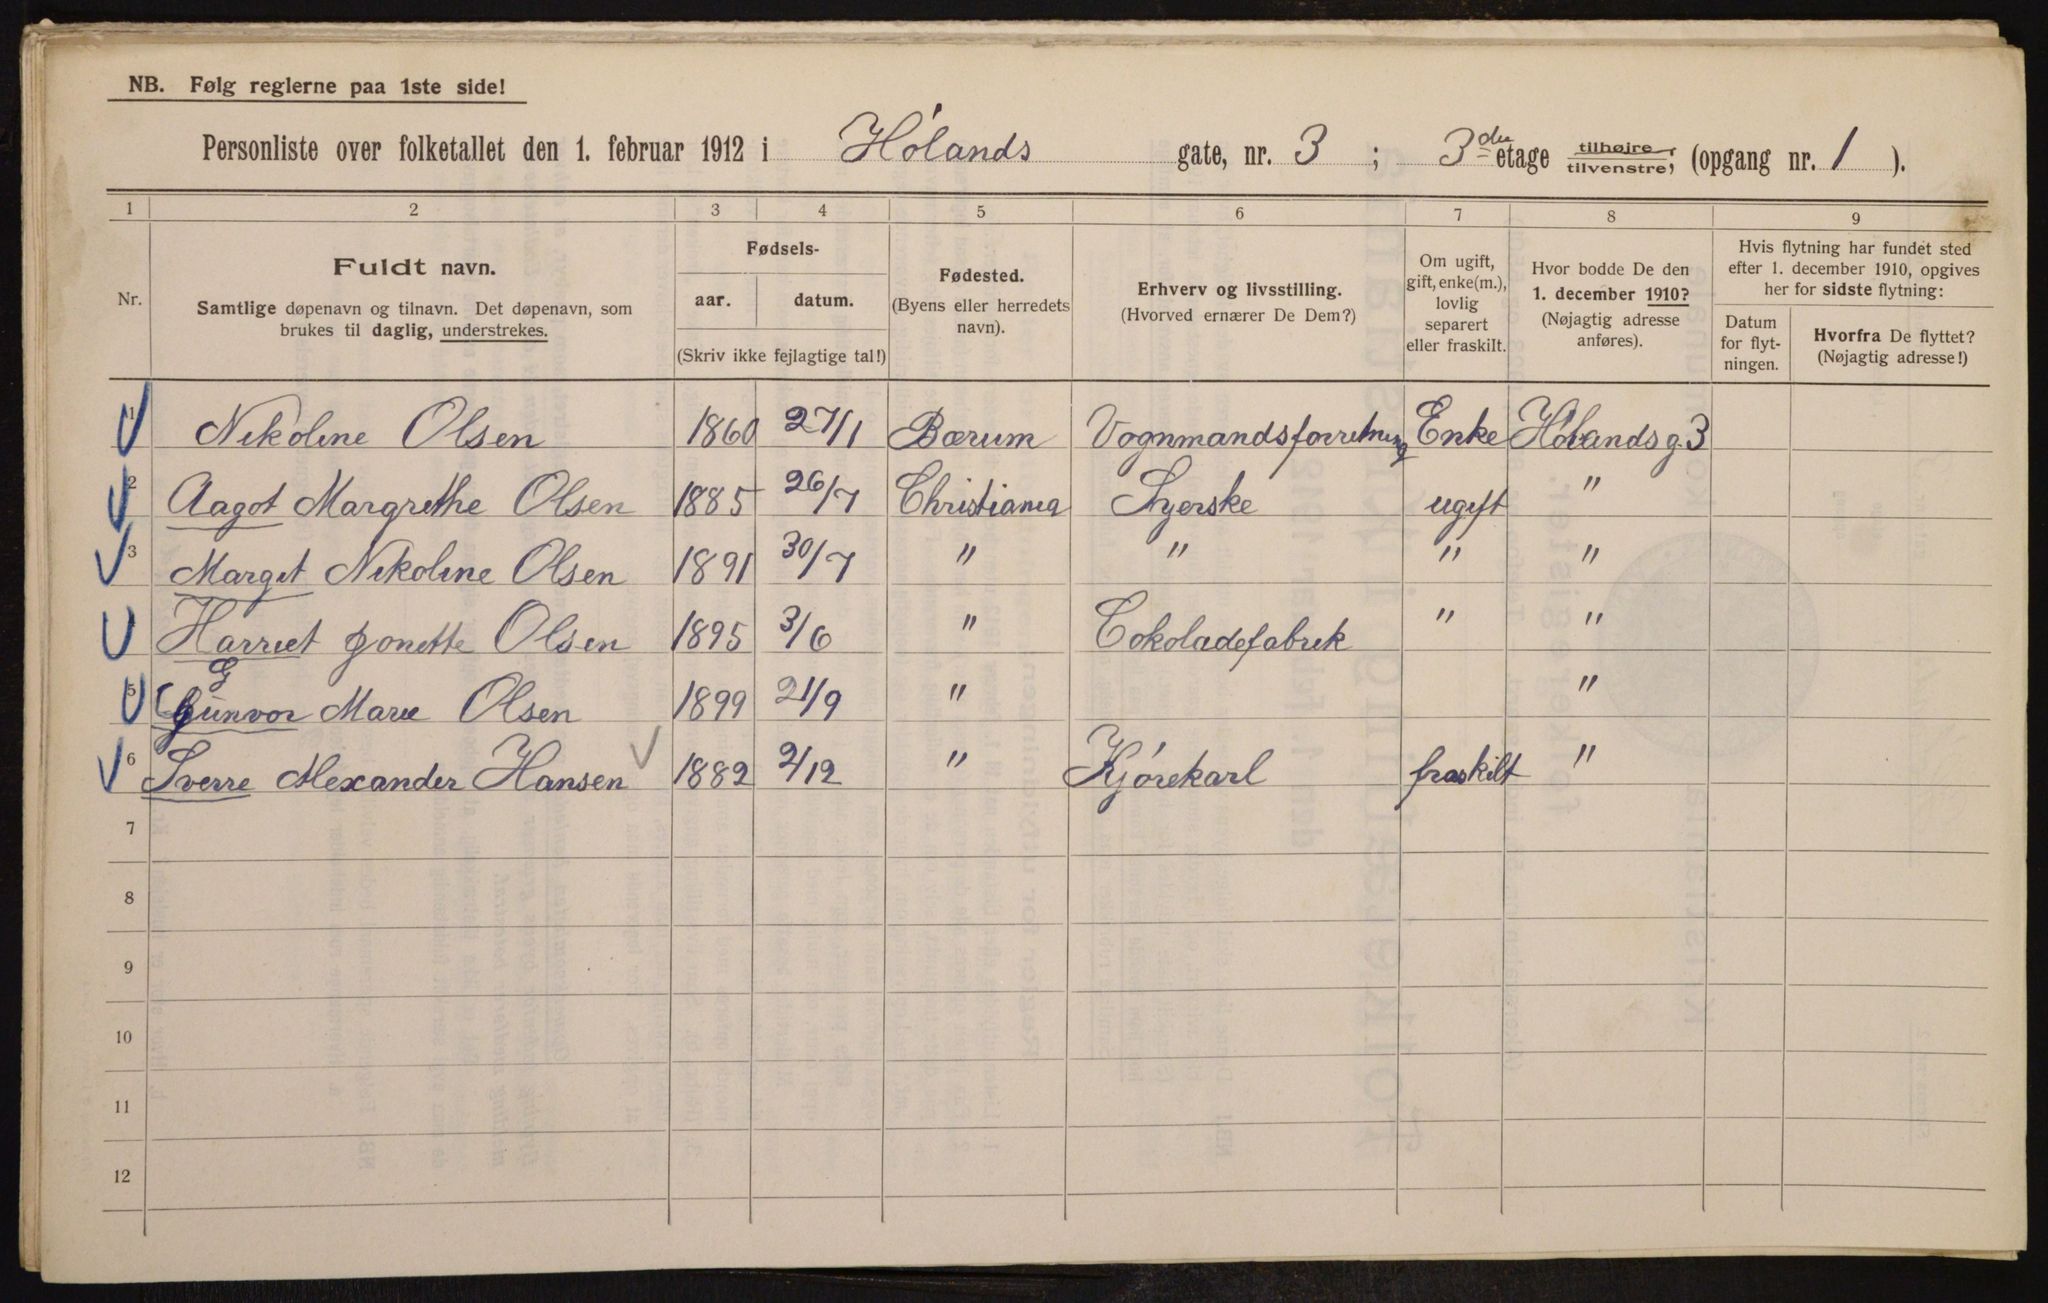 NB. Følg reglerne paa 1ste side!
Personliste over folketallet den 1. februar 1912 i Hølands gate, nr. 3 ; 3die etage tilhøire, tilvenstre, (opgang nr. 1 ).
1 2 3 4 5 6 7 8 9
Nr.
Fuldt navn.
Samtlige døpenavn og tilnavn. Det døpenavn, som
brukes til daglig, understrekes.
Fødsels-
aar. datum.
(Skriv ikke fejlagtige tal!)
Fødested.
(Byens eller herredets
navn).
Erhverv og livsstilling.
(Hvorved ernærer De Dem?)
Om ugift,
gift, enke(m.),
lovlig
separert
eller fraskilt.
Hvor bodde De den
1. december 1910?
(Nøjagtig adresse
anføres).
Hvis flytning har fundet sted
efter 1. december 1910, opgives
her for sidste flytning:
Datum
for flyt-
ningen.
Hvorfra De flyttet?
(Nøjagtig adresse!)
1 Nikoline Olsen 1860 27/1 Bærum Vognmandsforretning Enke Hølandsg. 3
2 Aagot Margrethe Olsen 1885 26/7 Christiania Syerske ugift "
3 Margit Nikoline Olsen 1891 30/7 " " " "
Harriet Jonette Olsen 1895 3/6 " Cokoladefabrik " "
5 Gunvor Marie Olsen 1899 21/9 " "
6 Sverre Alexander Hansen 1882 2/12 " Kjørekarl fraskilt "
7
8
9
10
11
12